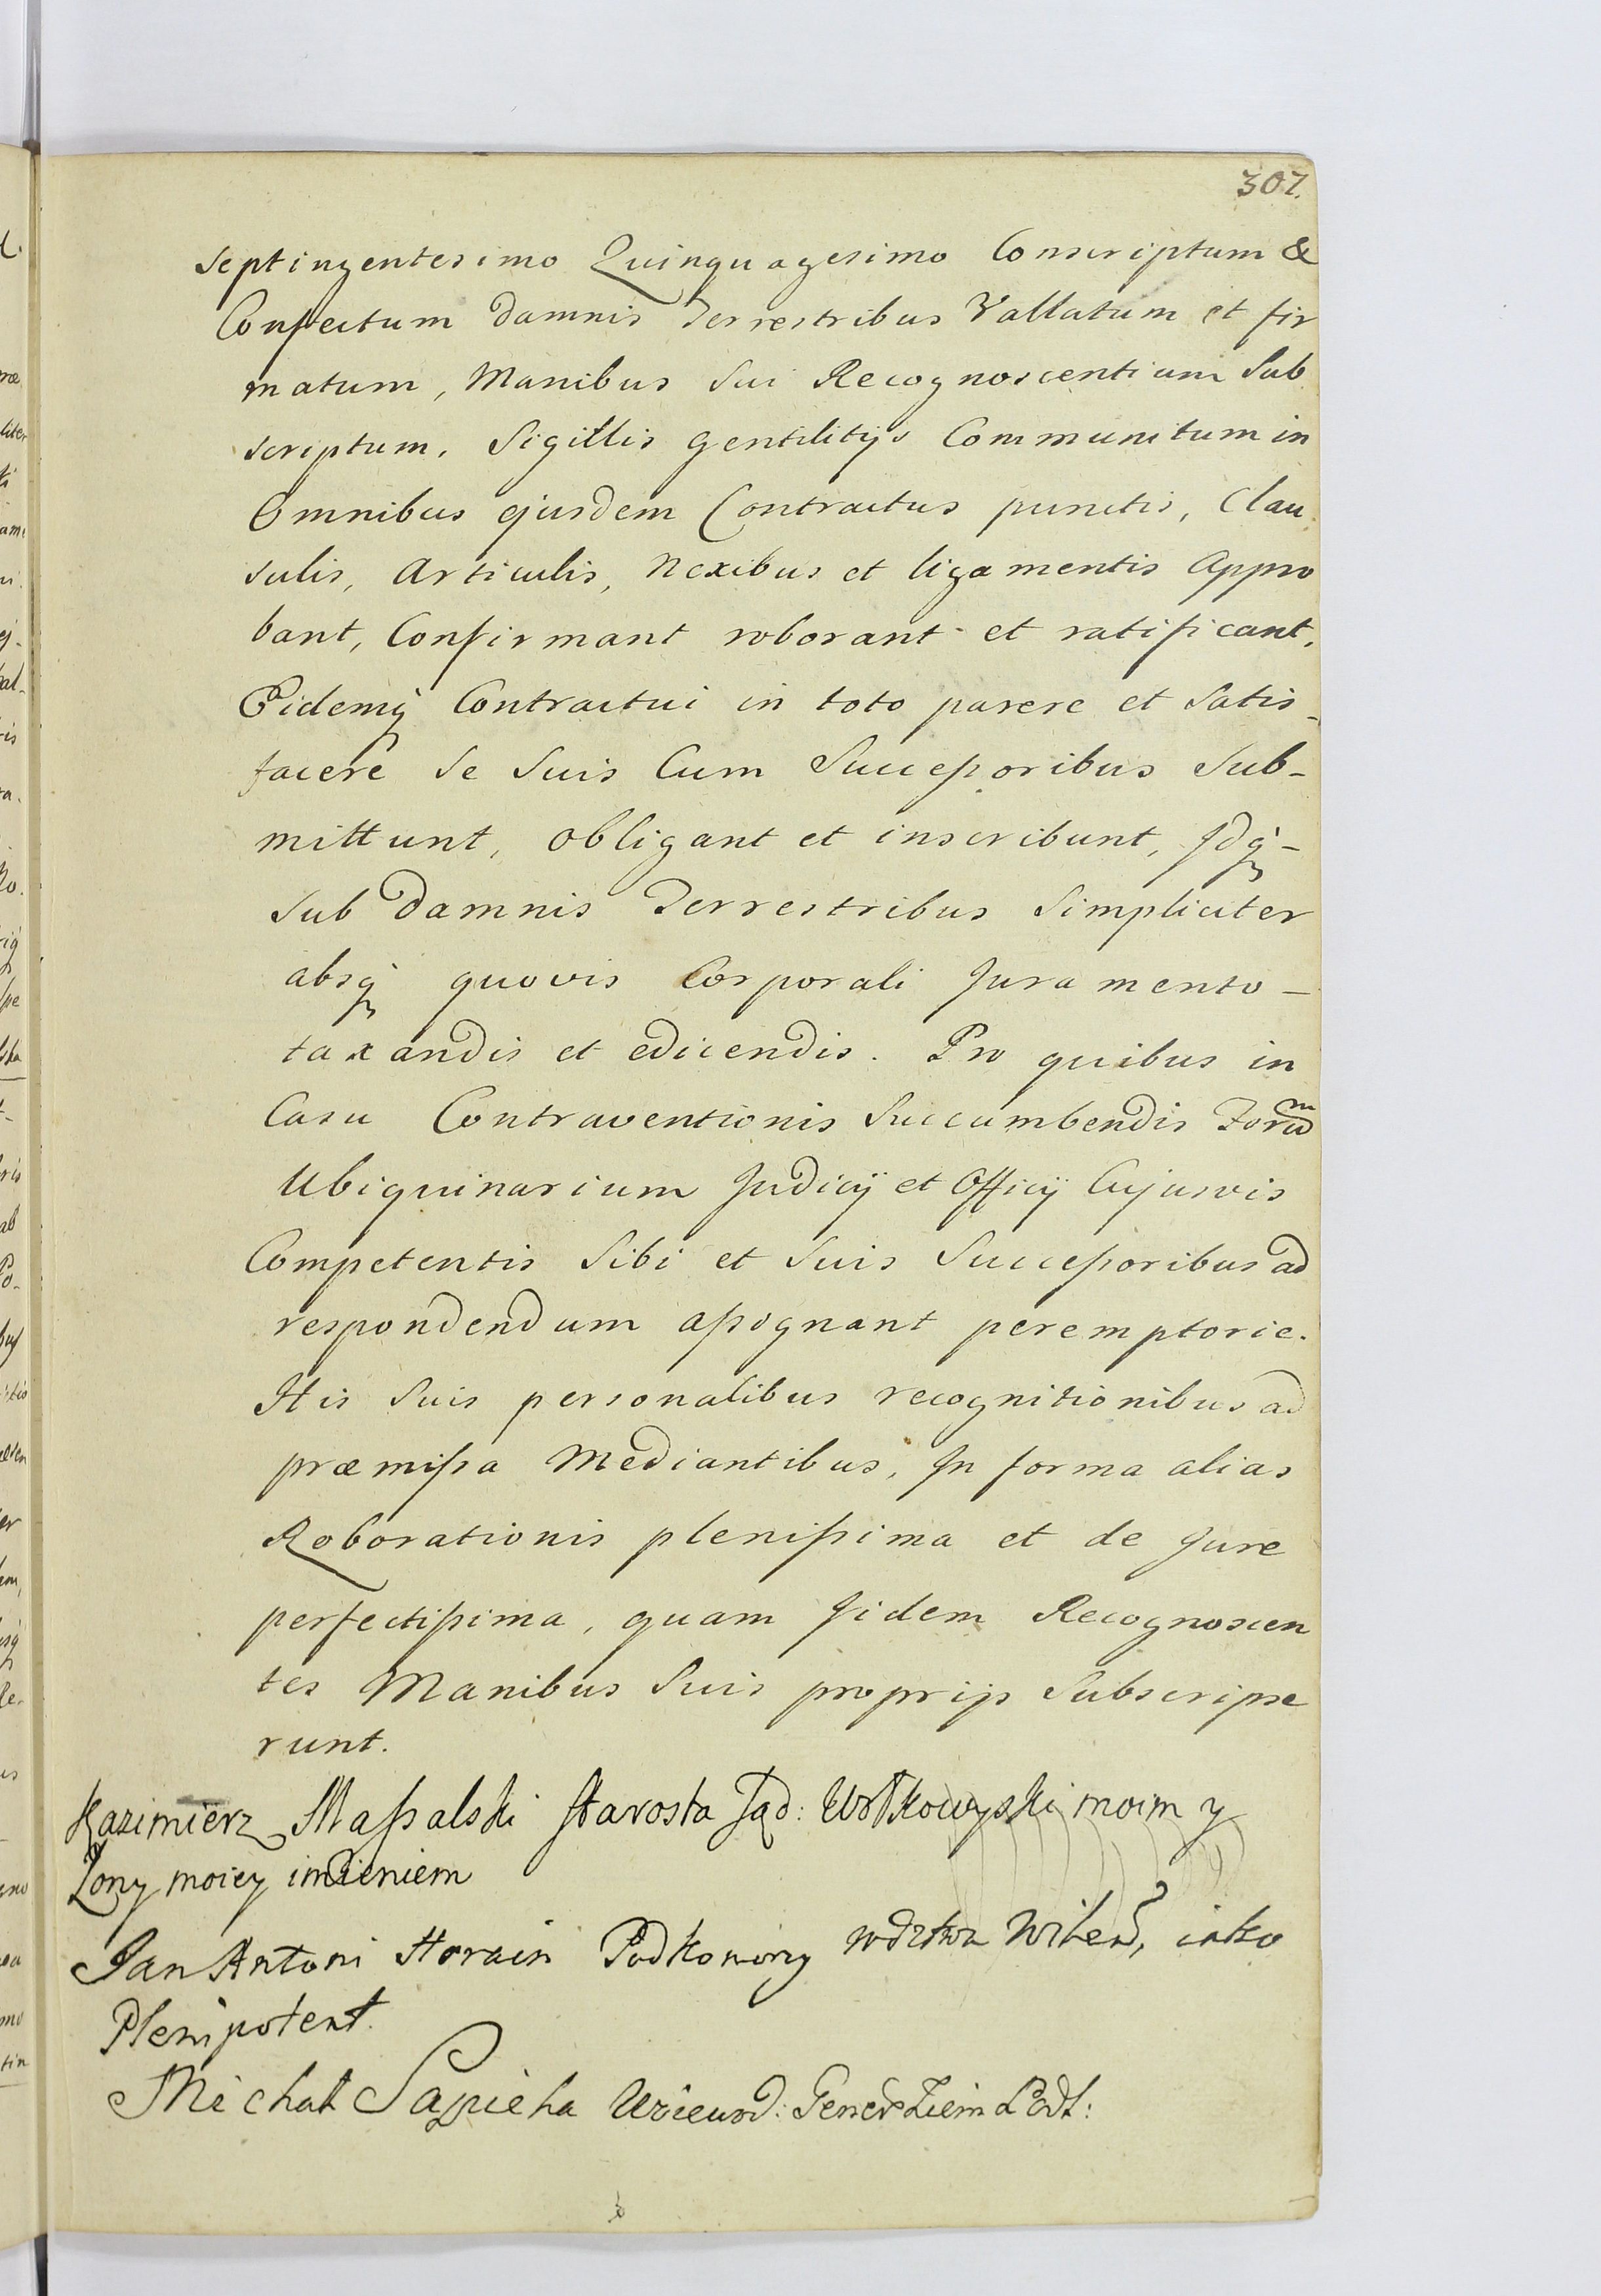 307.
Septingentesimo Quinquagesimo Conscriptum &
Confectum Damnis Terrestribus Vallatum et fir
matum, Manibus Sui Recognoscentium Sub
scriptum, Sigillis Gentilitijs Communitum in
Omnibus ejusdem Contractus punctis, Clau
sulis, Articulis, Nexibus et ligamentis Appro
bant, Confirmant roborant et ratificant,
Eidemq̃ Contractui in toto parere et Satis-
facere Se Suis Cum Successoribus Sub-
mittunt, obligant et inscribunt, Idq̃-
Sub Damnis Terrestribus Simpliciter
absq̃ quovis Corporali Juramento-
taxandis et edicendis. Pro quibus in
Casu Contraventionis Succumbendis Forũm
Ubiquinarium Judicÿ et Officÿ Cujusvis
Competentis Sibi et Suis Successoribus ad
respondendum assignant peremptorie.
His Suis personalibus recognitionibus ad
præmissa Mediantibus, In forma alias
Roborationis plenissima et de Jure
perfectissima, quam Iidem Recognoscen
tes Manibus Suis proprijs Subscripse
runt.
Kazimierz Massalski Starosta Sąd: Wołkowyski moim y
Żony moiey imieniem
Jan Antoni Horain Podkomorzy wdztwa Wileń, iako
Plenipotent.
Michał Sapieha Gener Ziem Podl: